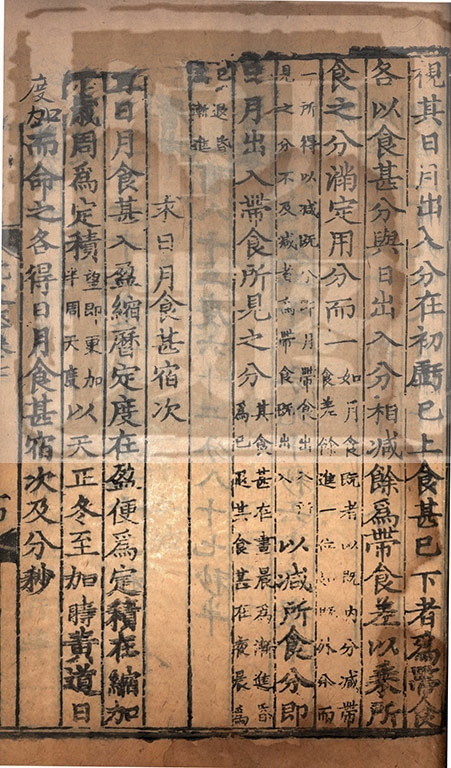 視其日月出入分在初虧已上食甚已下者爲帶食
各以食甚分與日出入分相減餘爲帶食差以乘所
食之分滿定用分而一如月食既者以既内分減帶
食差餘進一位如既外分而
一所得以減既分即月帶食出入所
見之分不及減者爲帶食既出入以減所食分即
日月出入帶食所見之分其食甚在晝晨爲漸進昏
爲已退其食甚在夜晨爲
已退昏
爲漸進
求日月食甚宿次
日月食甚入盈縮曆定度在盈便爲定積在縮加
半歲周爲定積望即更加
半周天度以天正冬至加時黃道日
度加而命之各得日月食甚宿次及分秒